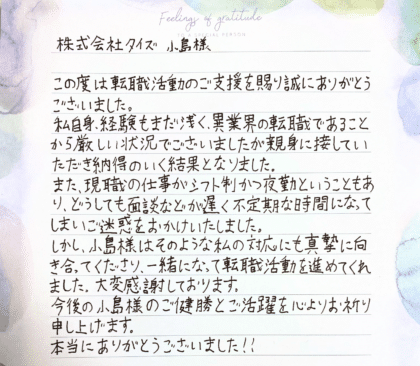 Feelings of gratitude
株式会社タイズ 小島様
この度は転職活動のご支援を賜り誠にありがとう
ございました。
私自身、経験もまだ浅く、異業界の転職であること
から厳しい状況でございましたが親身に接していた
だき納得のいく結果となりました。
また、現職の仕事がシフト制かつ夜勤ということもあ
り、どうしても面談などが遅く不定期な時間になって
しまいご迷惑をおかけいたしました。
しかし、小島様はそのような私の対応にも真摯に向
き合ってくださり、一緒になって転職活動を進めてくれ
ました。大変感謝しております。
今後の小島様のご健勝とご活躍を心よりお祈り
申し上げます。
本当にありがとうございました!!